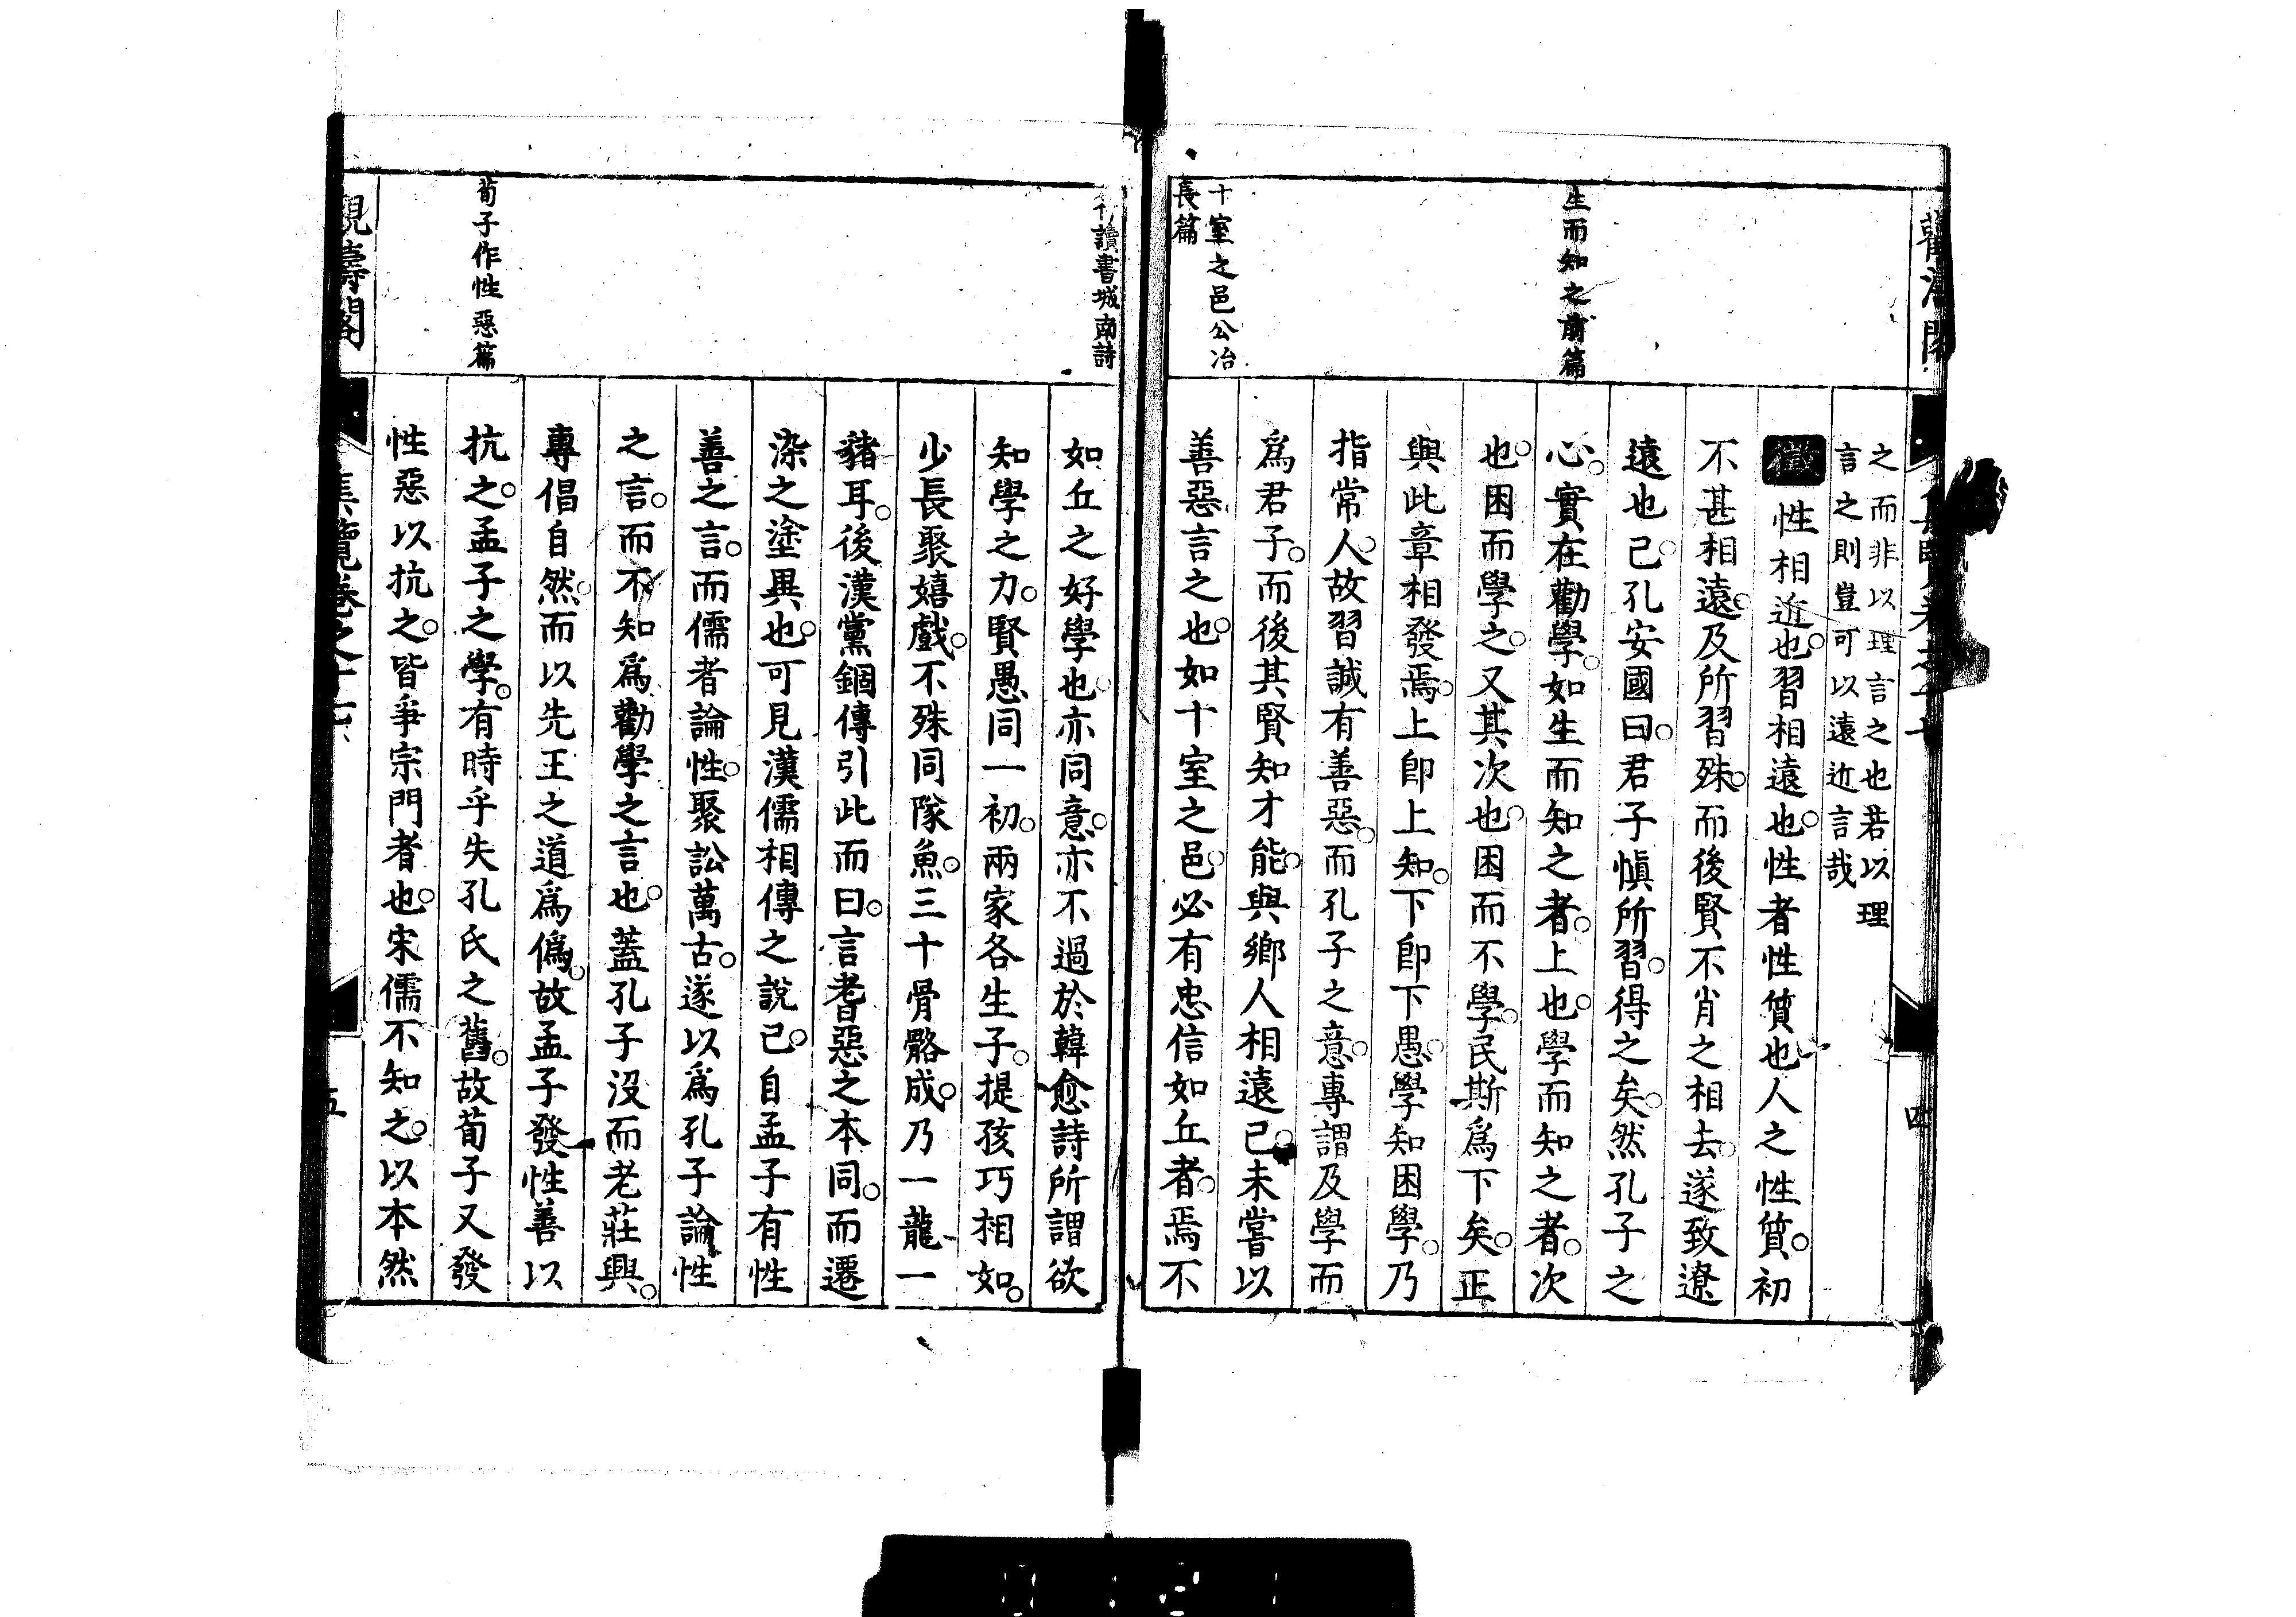 觀濤閣
生而知之前篇
十室之邑公冶
長篇
之而非以理言之也若以理
言之則豈可以遠近言哉
徵 性相近也。習相遠也。性者性質也人之性質。初
不甚相遠。及所習殊。而後賢不肖之相去。遂致遼
遠也。已。孔安國曰。君子愼所習。得之矣。然孔子之
心。實在勸學。如生而知之者。上也。學而知之者。次
也。困而學之。又其次也。困而不學。民斯爲下矣。正
與此章相發焉。上卽上知。下卽下愚。學知困學。乃
指常人。故習誠有善惡。而孔子之意。專謂及學而
爲君子。而後其賢知才能。與鄉人相遠已。未嘗以
善惡言之也。如十室之邑。必有忠信如丘者。焉不
四
讀書城南詩
荀子作性惡篇
如丘之好學也。亦同意。亦不過於韓愈詩所謂欲
知學之力。賢愚同一初。兩家各生子。提孩巧相如。
少長聚嬉戲。不殊同隊魚。三十骨骼成。乃一龍一
豬耳。後漢黨錮傳引此而曰。言耆惡之本同。而遷
染之塗異也。可見漢儒相傳之說已。自孟子有性
善之言。而儒者論性。聚訟萬古。遂以爲孔子論性
之言。而不知爲勸學之言也。蓋孔子沒而老莊興。
專倡自然。而以先王之道爲僞。故孟子發性善以
抗之。孟子之學。有時乎失孔氏之舊。故荀子又發
性惡以抗之。皆爭宗門者也。宋儒不知之。以本然
觀濤閣
集覽卷之十七
五